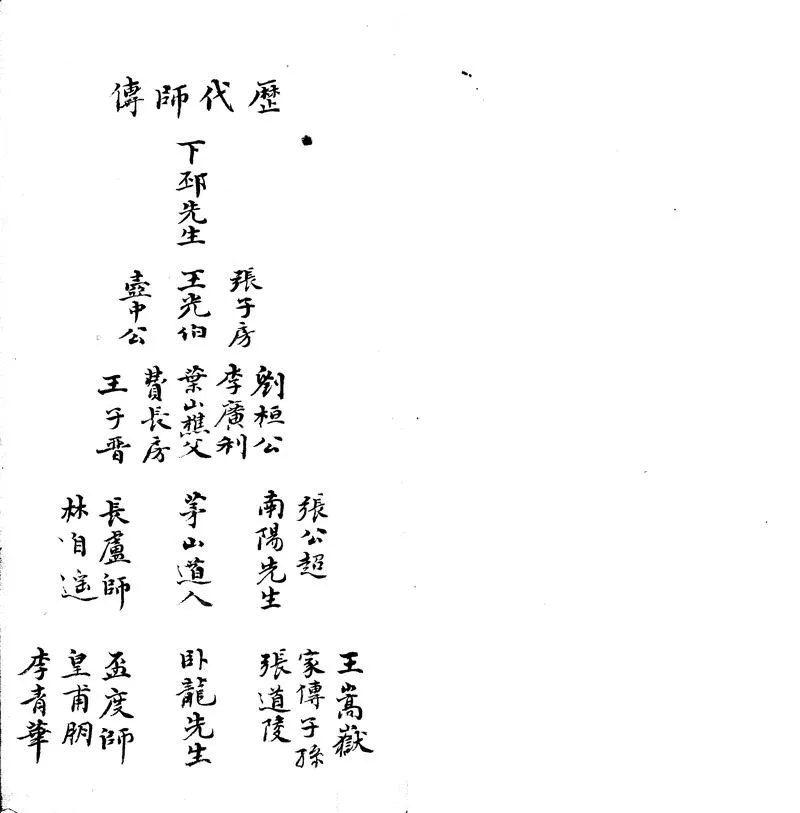 歷代師傳
下邳先生
張子房
王光伯
壼中公
劉桓公
李廣利
葉山樵父
費長房
王子晉
張公超
南陽先生
茅山道人
長盧師
林自遥
王嵩嶽
家傳子孫
張道陵
卧龍先生
盃度師
皇甫朋
李青華